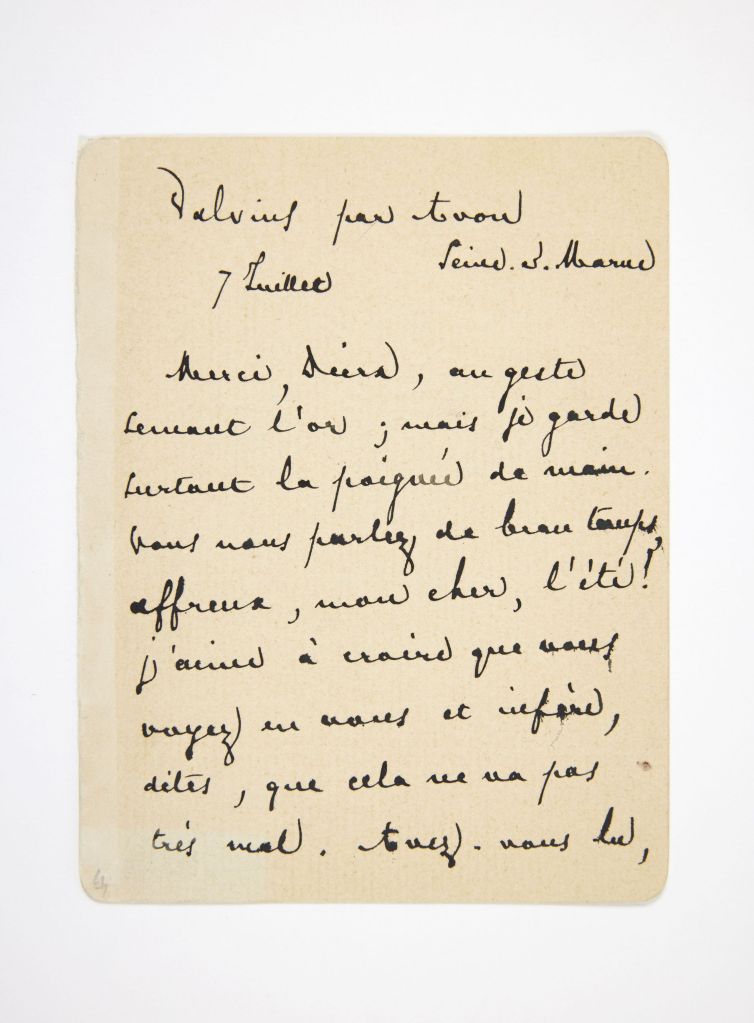 Valvins par Avon
Seine-&-Marne
7 Juillet
Merci, Deira, au geste
semant l'or ; mais je garde
surtout la poignée de main.
Vous nous parlez de beau temps,
affreux, mon cher, l'été!
j'aime à croire que vous
voyez en vous et infère,
dites, que cela ne va pas
très mal. Avez-vous lu,